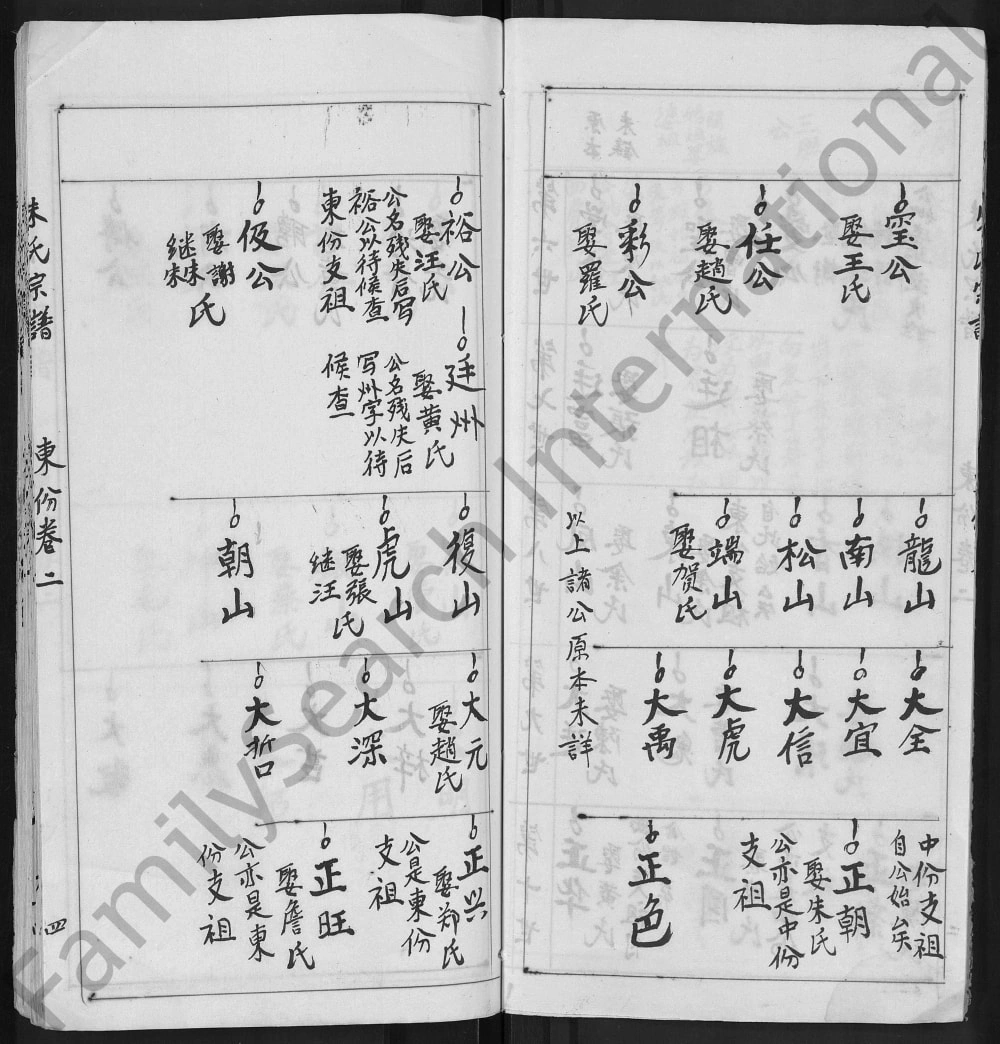 霊公
娶王氏
任公
娶趙氏
彩公
娶羅氏
龍山
南山
松山
端山
娶賀氏
以上諸公原本未詳
大全
大宜
大信
大虎
大禹
中份支祖
自公始矣
正朝
娶朱氏
公亦是中份
支祖
正色
裕公
娶汪氏
公名残失后写
裕公以待候查
東份支祖
伋公
娶謝氏
继朱
廷州
娶黄氏
公名残失后
写州字以待
候查
復山
虎山
娶張氏
继汪
朝山
大元
娶趙氏
大深
大哲
正兴
娶郑氏
公是東份
支祖
正旺
娶詹氏
公亦是東
份支祖
朱氏宗譜
東份卷二
四
FamilySearch International